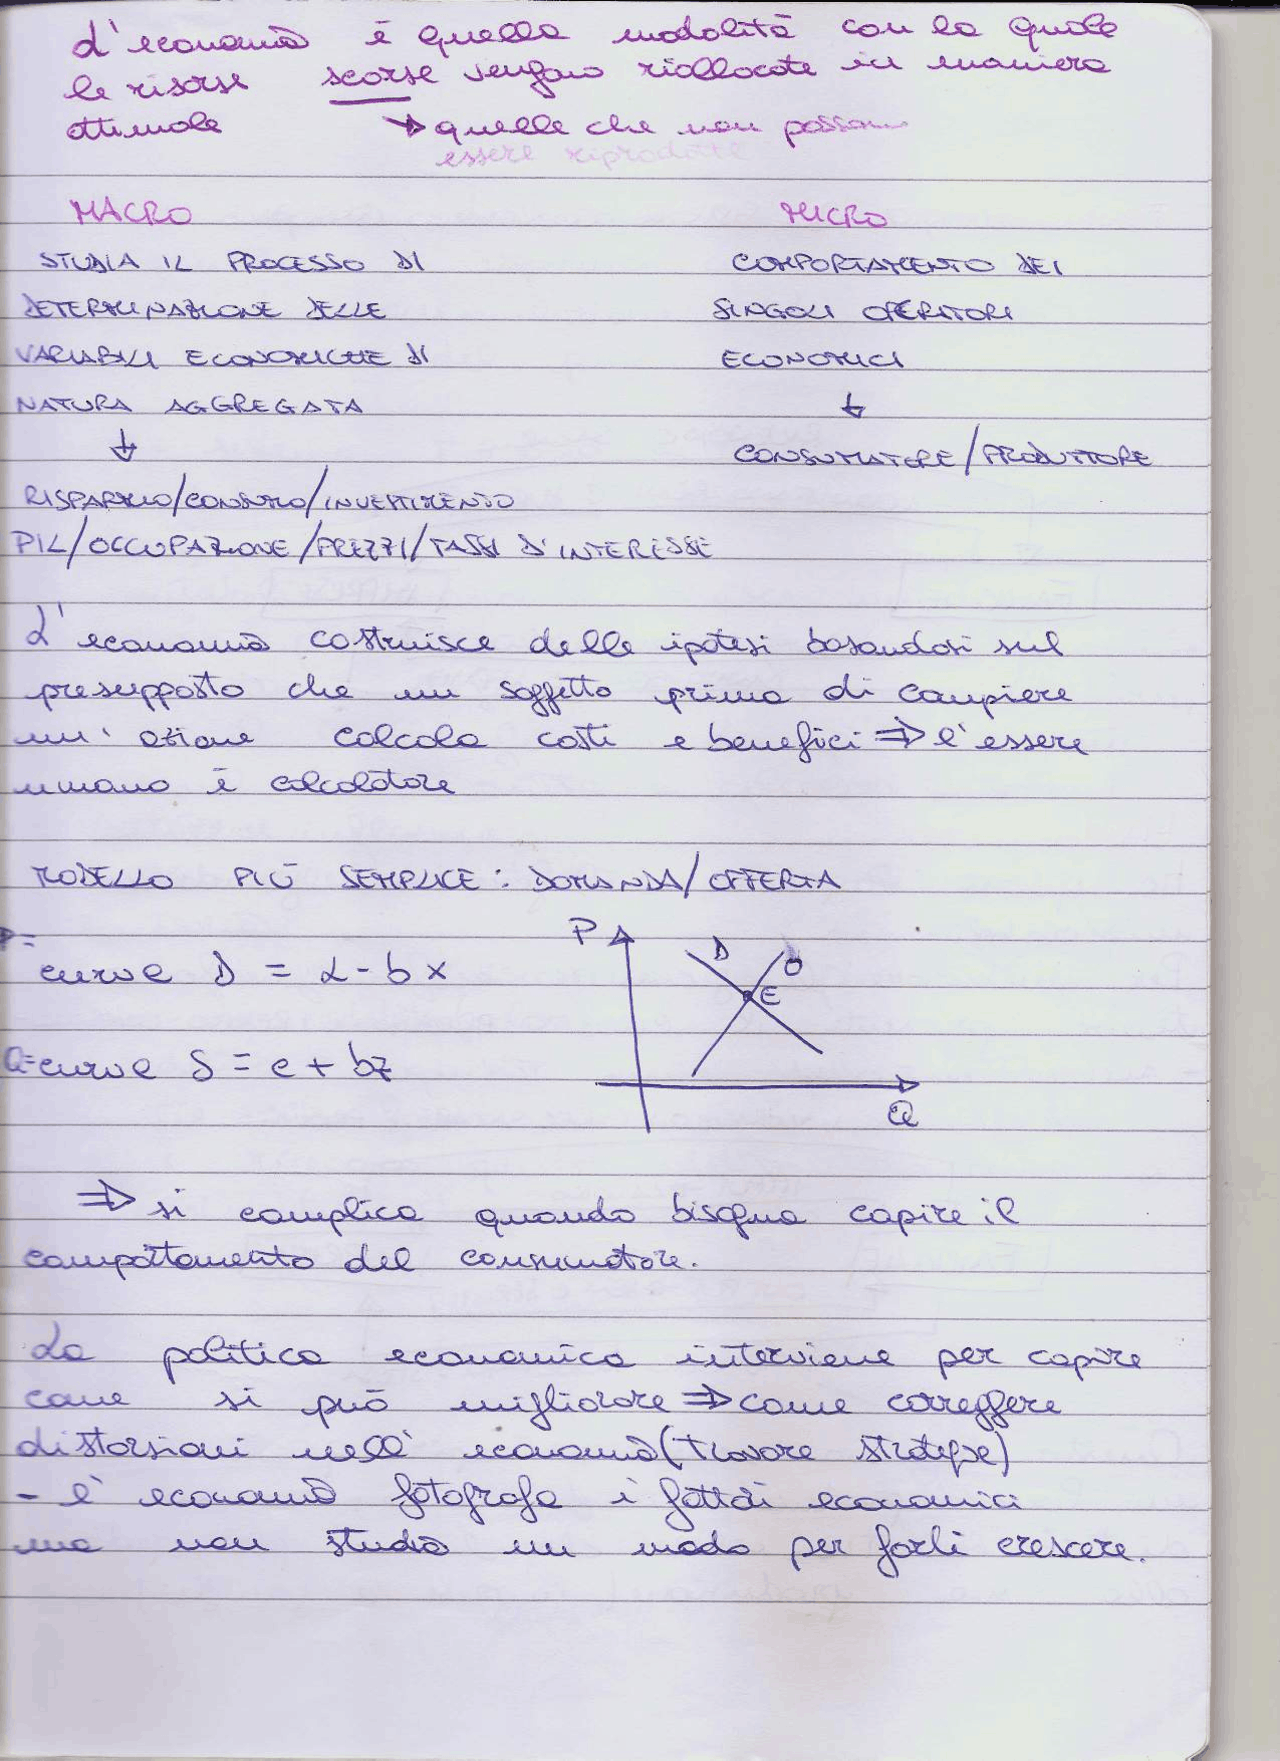 L'economia è quella modalità con la quale
le risorse scarse vengono riallocate in maniera
ottimale → quelle che non possono
essere riprodotte
MACRO
STUDIA IL PROCESSO DI
DETERMINAZIONE DELLE
VARIABILI ECONOMICHE DI
NATURA AGGREGATA
↓
RISPARMIO/CONSUMO/INVESTIMENTO
PIL/OCCUPAZIONE/PREZZI/TASSI D'INTERESSE
MICRO
COMPORTAMENTO DEI
SINGOLI OPERATORI
ECONOMICI
↓
CONSUMATORE/PRODUTTORE
L'economia costruisce delle ipotesi basandosi sul
presupposto che un soggetto prima di compiere
un'azione calcola costi e benefici ⇒ l'essere
umano è calcolatore
MODELLO PIÙ SEMPLICE: DOMANDA/OFFERTA
P=
curva D = α - bx
Q=curva S = c + bz
P
D
O
E
Q
⇒ si complica quando bisogna capire il
comportamento del consumatore.
La politica economica interviene per capire
come si può migliorare ⇒ come correggere
distorsioni nell'economia (trovare strategie)
- l'economia fotografa i fatti economici
ma non studia un modo per farli crescere.